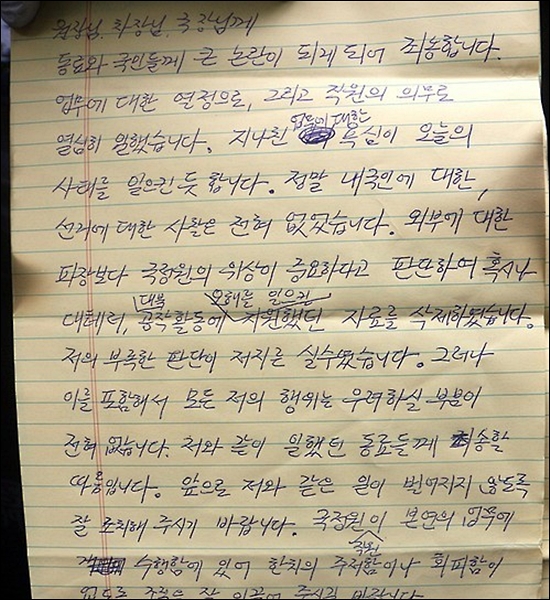 원장님, 차장님, 국장님께
동료와 국민들께 큰 논란이 되게 되어 죄송합니다.
업무에 대한 열정으로, 그리고 직원의 의무로
열심히 일했습니다. 지나친 업무에 대한 욕심이 오늘의
사태를 일으킨 듯 합니다. 정말 내국인에 대한,
선거에 대한 사찰은 전혀 없었습니다. 외부에 대한
파장보다 국정원의 위상이 중요하다고 판단하여 혹시나
대테러, 대북 공작활동에 오해를 일으킨 지원했던 자료를 삭제하였습니다.
저의 부족한 판단이 저지른 실수였습니다. 그러나
이를 포함해서 모든 저의 행위는 우려하실 부분이
전혀 없습니다. 저와 같이 일했던 동료들께 죄송할
따름입니다. 앞으로 저와 같은 일이 벌어지지 않도록
잘 조치해 주시기 바랍니다. 국정원 직원이 본연의 업무에
수행함에 있어 한치의 주저함이나 회피함이
없도록 조직을 잘 이끌어 주시길 바랍니다.